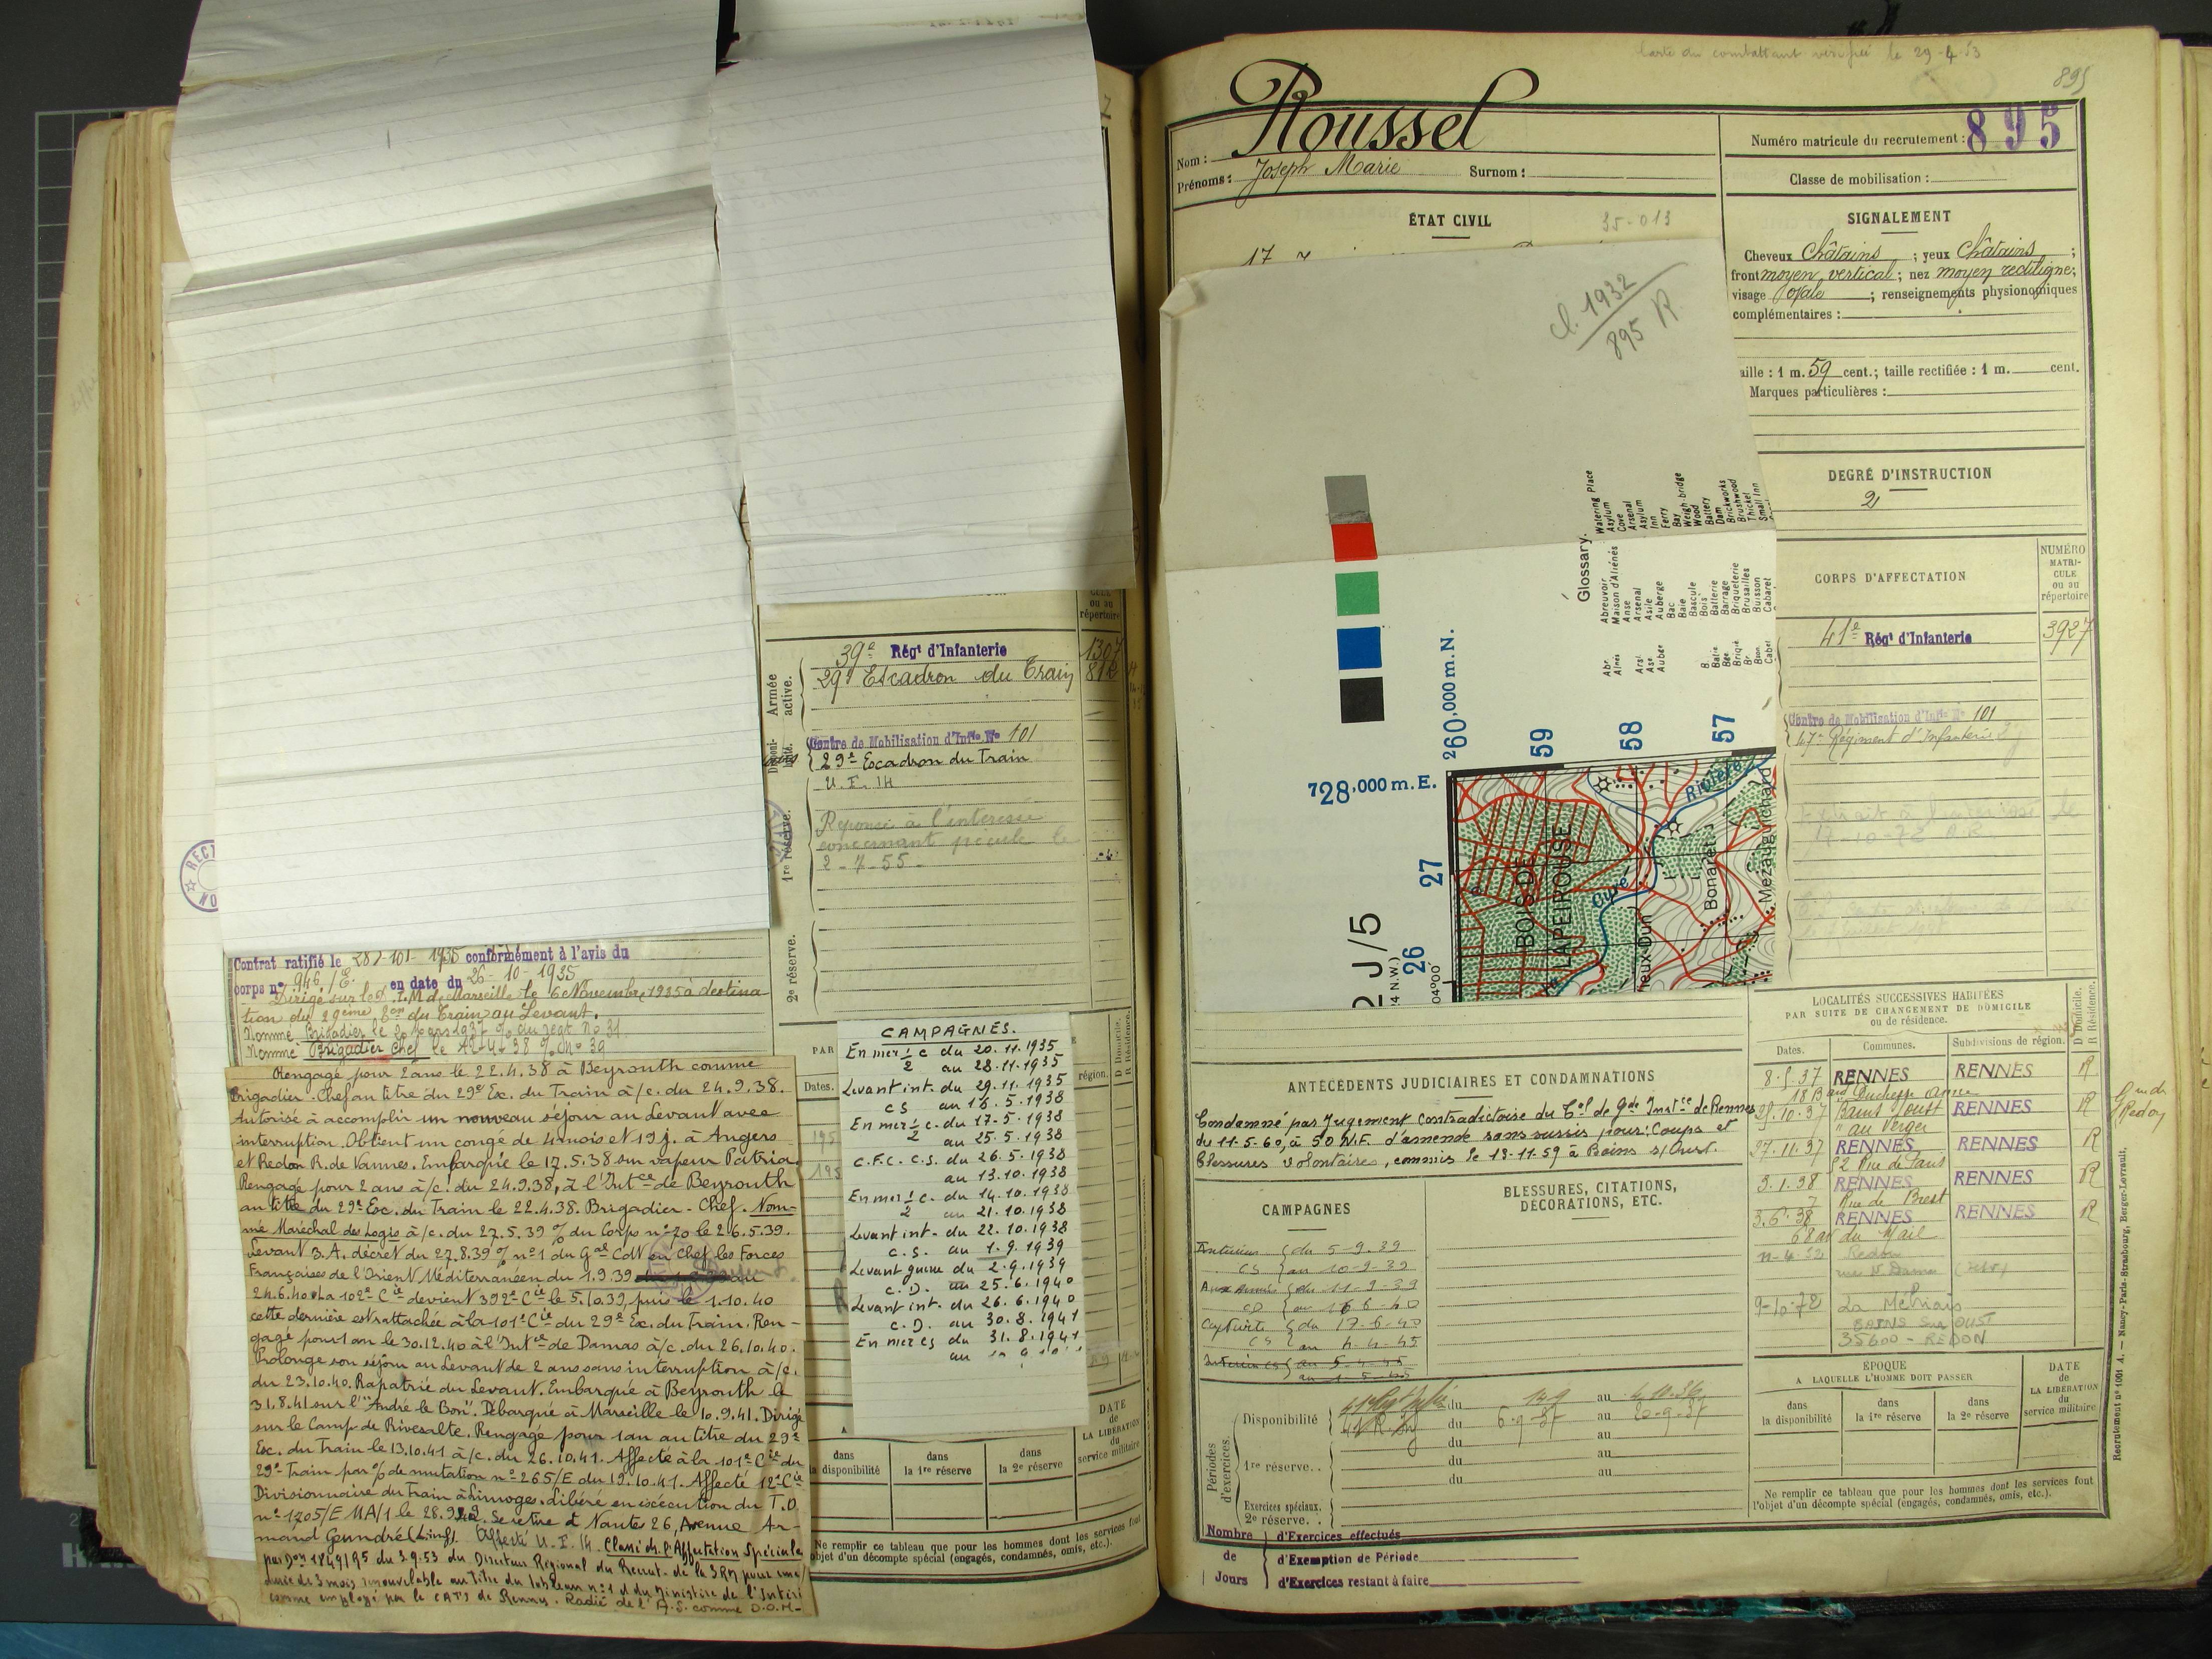 39e Régt d'Infanterie 1307
29e Escadron du Train 812
Armée active.
Centre de Mobilisation d'Infie No 101
29e Escadron du Train
U.I. 14
1re réserve.
Réponse à l'intéressé
concernant pécule le
2-7-55-
2e réserve.
ou au
répertoire
Contrat ratifié le 28-10-1935 conformément à l'avis du
corps no 946/E. en date du 26-10-1935
Dirigé sur le D.I.M de Marseille le 6 Novembre 1935 à destina-
tion du 29ème Eon du Train au Levant.
Nommé Brigadier le
Nommé Brigadier Chef le
Rengagé pour 2 ans le 22.4.38 à Beyrouth comme
Brigadier-Chef au titre du 29e Esc. du Train à/c. du 24.9.38.
Autorisé à accomplir un nouveau séjour au Levant avec
interruption. Obtient un congé de 4 mois et 19 j. à Angers
et Redon R. de Vannes. Embarqué le 17.5.38 sur vapeur Patria
Rengagé pour 2 ans à/c. du 24.9.38, à l'Intce de Beyrouth
au titre du 29e Esc. du Train le 22.4.38. Brigadier-Chef. Nom-
mé Maréchal des Logis à/c. du 27.5.39 % du Corps no 20 le 26.5.39.
Levant 3.A. décret du 27.8.39 % no 1 du Gal Cdt en Chef les Forces
Françaises de l'Orient Méditerranéen du 1.9.39 au
24.6.40. La 102e Cie devient 392e Cie le 5.10.39, puis le 1.10.40
cette dernière est rattachée à la 101e Cie du 29e Esc. du Train. Ren-
gagé pour 1 an le 30.12.40 à l'Intce de Damas à/c. du 26.10.40.
Prolonge son séjour au Levant de 2 ans sans interruption à/c.
du 23.10.40. Rapatrié du Levant. Embarqué à Beyrouth le
31.8.41 sur l'"André le Bon". Débarqué à Marseille le 10.9.41. Dirigé
sur le Camp de Rivesalte. Rengagé pour 1 an au titre du 29e
Esc. du Train le 13.10.41 à/c. du 26.10.41. Affecté à la 101e Cie du
29e Train par % de mutation no 265/E du 19.10.41. Affecté 12e Cie
Divisionnaire du Train à Limoges. Libéré en exécution du T.O.
no 1205/E MA/1 le 28.9.42. Se retire à Nantes 26, Avenue Ar-
mand (L.inf). Affecté U.I. 14. Classé ds. l'Affectation Spéciale
par Don 1849/95 du 3.9.53 du Directeur Régional du Recrut- de la 3 RM pour une
durée de 3 mois renouvelable au titre du tableau no 1 d du Ministère de l'Intéri
comme employé par le CATI de Rennes. Radié de l'A.S. comme D.O.M-
PAR
Dates.
région.
D Domicile.
R Résidence.
CAMPAGNES.
En mer 1/2 c du 20.11.1935
au 28.11.1935
Levant int. du 29.11.1935
CS au 16.5.1938
En mer 1/2 c. du 17.5.1938
au 25.5.1938
C.F.C. C.S. du 26.5.1938
au 13.10.1938
En mer 1/2 c. du 14.10.1938
au 21.10.1938
Levant int. du 22.10.1938
C.S. au 1.9.1939
Levant guerre du 2.9.1939
C.D. au 25.6.1940
Levant int. du 26.6.1940
C.D. au 30.8.1941
En mer CS du 31.8.1941
au
dans
la disponibilité
dans
la 1re réserve
dans
la 2e réserve
DATE
de
LA LIBÉRATION
du
service militaire
Ne remplir ce tableau que pour les hommes dont les services font
objet d'un décompte spécial (engagés, condamnés, omis, etc.).
Carte du combattant vérifiée le 29-4-53
895
Nom : Roussel
Prénoms : Joseph Marie Surnom :
Numéro matricule du recrutement : 895
Classe de mobilisation :
ÉTAT CIVIL
35-013
17
SIGNALEMENT
Cheveux Châtains ; yeux Châtains ;
front moyen vertical ; nez moyen rectiligne ;
visage ovale ; renseignements physionomiques
complémentaires :
aille : 1 m. 59 cent. ; taille rectifiée : 1 m. cent.
Marques particulières :
DEGRÉ D'INSTRUCTION
2
cl. 1932
895 R.
Glossary.
Abr. Abreuvoir Watering Place
Alnés Maison d'Aliénés Asylum
Anse Cove
Arsl. Arsenal Arsenal
Ase Asile Asylum
Aubge Auberge Inn
Bac Ferry
Baie Bay
Bascule Weigh-bridge
B. Bois Wood
Batie Batterie Battery
Bge Barrage Dam
Briqie Briqueterie Brickworks
Br. Brusailles Brushwood
Bson Buisson Thicket
Cabet Cabaret Small Inn
260,000 m. N.
59
58
57
728,000 m. E.
27
26
2 J/5
(4 N.W.)
04°00'
BOIS DE
LAPEIROUSE
Rivière
Bonaret
Mezaugnichard
ieux-Dun
CORPS D'AFFECTATION
NUMÉRO
MATRI-
CULE
ou au
répertoire
41e Régt d'Infanterie 3927
Centre de Mobilisation d'Infie No 101
47e Régiment d'Infanterie
Extrait à l'intéressé le
17-10-72
ANTÉCÉDENTS JUDICIAIRES ET CONDAMNATIONS
Condamné par Jugement contradictoire du Tal de Gde Instce de Rennes
du 11-5-60, à 50 N.F. d'amende sans sursis pour : Coups et
Blessures volontaires, commis le 18-11-59 à Bains s/Oust.
CAMPAGNES
BLESSURES, CITATIONS,
DÉCORATIONS, ETC.
Intérieur { du 5-9-39
CS { au 10-9-39
Aux Armées { du 11-9-39
CD { au 16-6-40
Captivité { du 17-6-40
CS { au 4-4-45
LOCALITÉS SUCCESSIVES HABITÉES
PAR SUITE DE CHANGEMENT DE DOMICILE
ou de résidence.
Dates. Communes. Subdivisions de région.
D Domicile.
R Résidence.
8.5.37 RENNES RENNES R
18 Bard Duchesse Anne
29.10.37 Bains s/Oust RENNES R
"au Verger
27.11.37 RENNES RENNES R
52 Rue de Paris
3.1.38 RENNES RENNES R
7 Rue de Brest
3.6.38 RENNES RENNES R
68 du Mail
Redon
rue N. Dame
9-10-72 La Métriais
BAINS Sur OUST
35600 - REDON
Périodes
d'exercices.
Disponibilité du au 4.10.36
du 6-9-37 au 20-9-37
du au
1re réserve.. du au
du au
Exercices spéciaux.
2e réserve. .
Nombre d'Exercices effectués
de d'Exemption de Période
Jours d'Exercices restant à faire
ÉPOQUE
A LAQUELLE L'HOMME DOIT PASSER
dans
la disponibilité
dans
la 1re réserve
dans
la 2e réserve
DATE
de
LA LIBÉRATION
du
service militaire
Ne remplir ce tableau que pour les hommes dont les services font
l'objet d'un décompte spécial (engagés, condamnés, omis, etc.).
Recrutement no 1001 A. — Nancy-Paris-Strasbourg, Berger-Levrault.